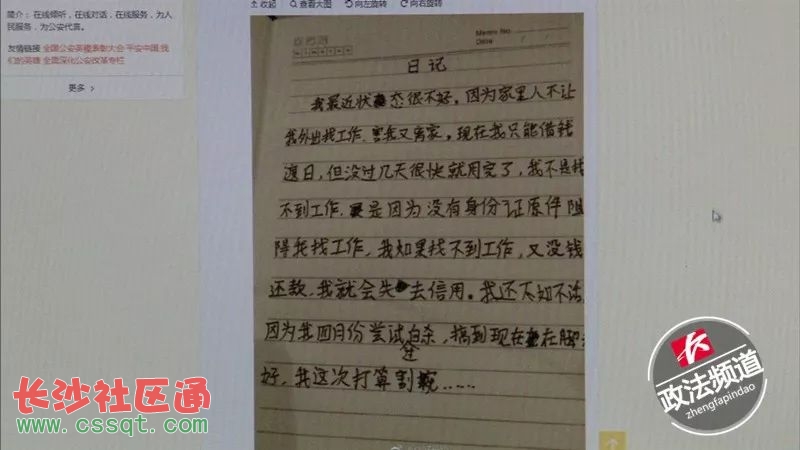 简介：在线倾听，在线对话，在线服务，为人
民服务，为公安代言。
友情链接 全国公安英模表彰大会 平安中国 我
们的英雄 全面深化公安改革专栏
更多 >
收起 查看大图 向左旋转 向右旋转
Memo No.
Date / /
日记
我最近状态很不好，因为家里人不让
我外出找工作，害我又离家，现在我只能借钱
度日，但没过几天很快就用完了，我不是找
不到工作，是因为没有身份证原件阻
碍我找工作，我如果找不到工作，又没钱
还款，我就会失去信用。我还不如不活
因为我四月份尝试自杀，搞到现在在脚
好，我这次打算割腕……
长沙社区通
www.cssqt.com
政法频道
zhengfapindao